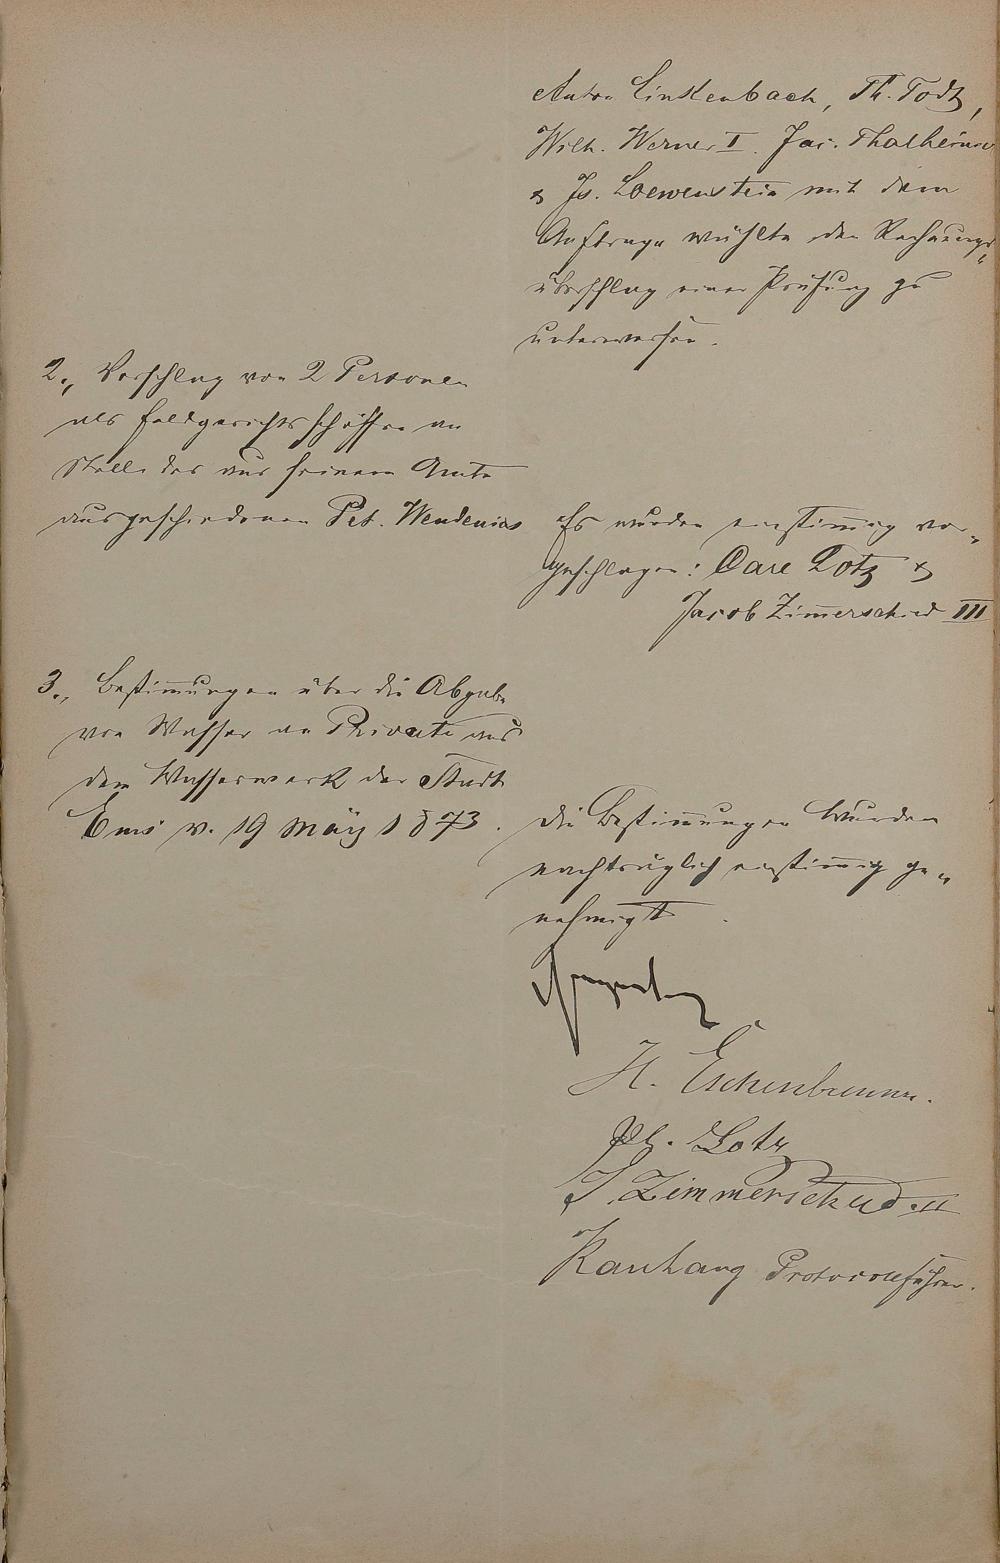 Anton Linkenbach, Th. Todt,
Wilh. Werner I. Jac. Thalheimer
& Is. Loewenstein mit dem
Auftrage wählte den Rechnungs„
überschlag einer Prüfung zu
unterwerfen.
2., Vorschlag von 2 Personen
als Feldgerichtsschöffen an
Stelle des aus seinem Amte
ausgeschiedenen Pet. Wendenius
Es wurden einstimig vor„
geschlagen: Carl Lotz &
Jacob Zimerschied III
3., Bestimungen über die Abgabe
von Wasser an Private aus
dem Wasserwerk der Stadt
Ems v. 19 März 1873.
Die Bestimungen wurden
nachträglich einstimig ge„
nehmigt.
H. Eschenbrenner.
Ph. Lotz
J. Zimmerschied. II
Kauhang Protocollführer.